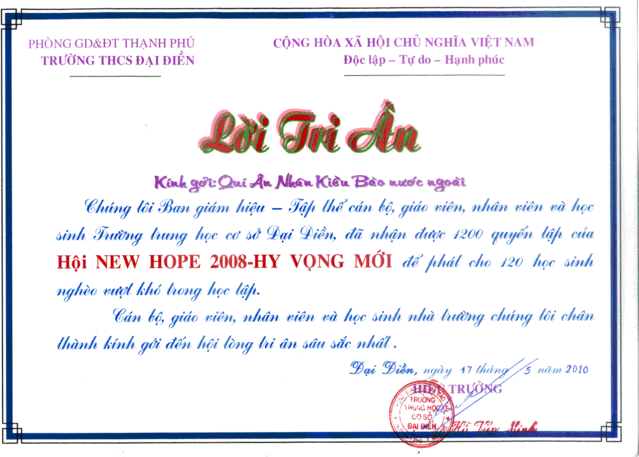 PHÒNG GD&ĐT THẠNH PHÚ
TRƯỜNG THCS ĐẠI ĐIỀN
CỘNG HÒA XÃ HỘI CHỦ NGHĨA VIỆT NAM
Độc lập – Tự do – Hạnh phúc
Lời Tri Ân
Kính gởi: Quí Ân Nhân Kiều Bào nước ngoài
Chúng tôi Ban giám hiệu – Tập thể cán bộ, giáo viên, nhân viên và học
sinh Trường trung học cơ sở Đại Điền, đã nhận được 1200 quyển tập của
Hội NEW HOPE 2008-HY VỌNG MỚI để phát cho 120 học sinh
nghèo vượt khó trong học tập.
Cán bộ, giáo viên, nhân viên và học sinh nhà trường chúng tôi chân
thành kính gởi đến hội lòng tri ân sâu sắc nhất .
Đại Điền, ngày 17 tháng 5 năm 2010
HIỆU TRƯỞNG
TRƯỜNG
TRUNG HỌC
CƠ SỞ
ĐẠI ĐIỀN